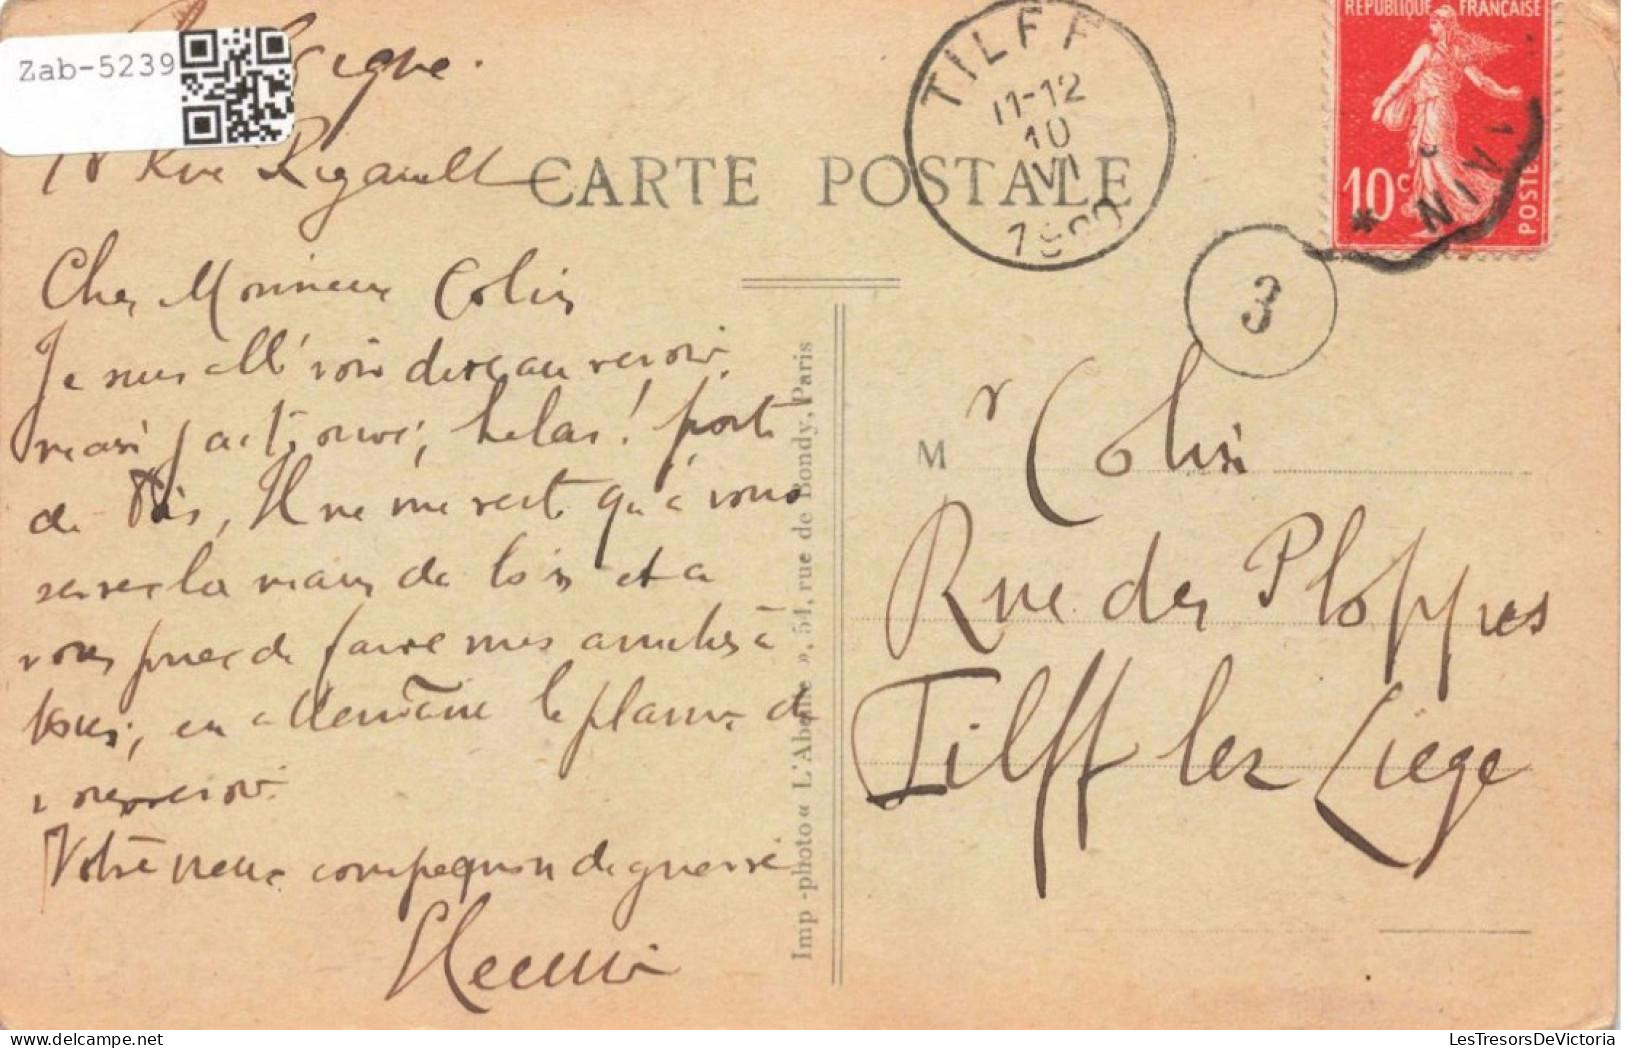 Zab-5239
Rue Rigault
CARTE POSTALE
TILFF
11-12
10
VI
REPUBLIQUE FRANÇAISE
10c
POSTES
3
Cher Monsieur Colin
Je suis allé vous dire au revoir,
mais j'ai trouvé, helas! porte
de bois, Il ne me reste qu'à vous
serrer la main de loin et a
vous prier de faire mes amitiés à
tous, en attendant le plaisir de
vous revoir.
Votre vieux compagnon de guerre
Imp-photo « L'Abeille », 54, rue de Bondy, Paris
Mr Colin
Rue des Ploppes
Tilff lez Liege
LesTresorsDeVictoria